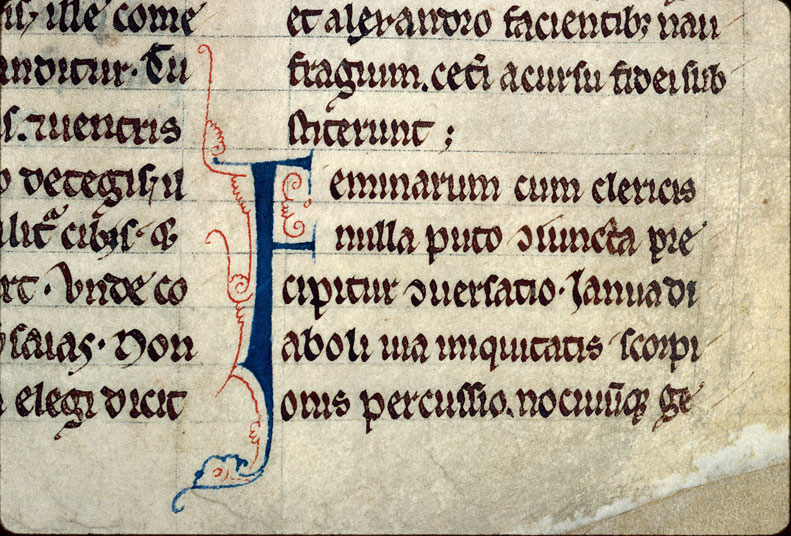 is, ille come
anditur. Tu
s. ⁊ uentris
o detegis, il
cibis
rt. Vnde co
ysaias. Non
elegi dicit
et alexandro facientibꝫ nau
fragium. ceti a cursu fidei sub
stiterunt ;
Feminarum cum clericis
nulla puto ↄiuncta pre
cipitur ↄuersatio. Janua di
aboli uia iniquitatis scorpi
onis percussio. nociuūqꝫ ge